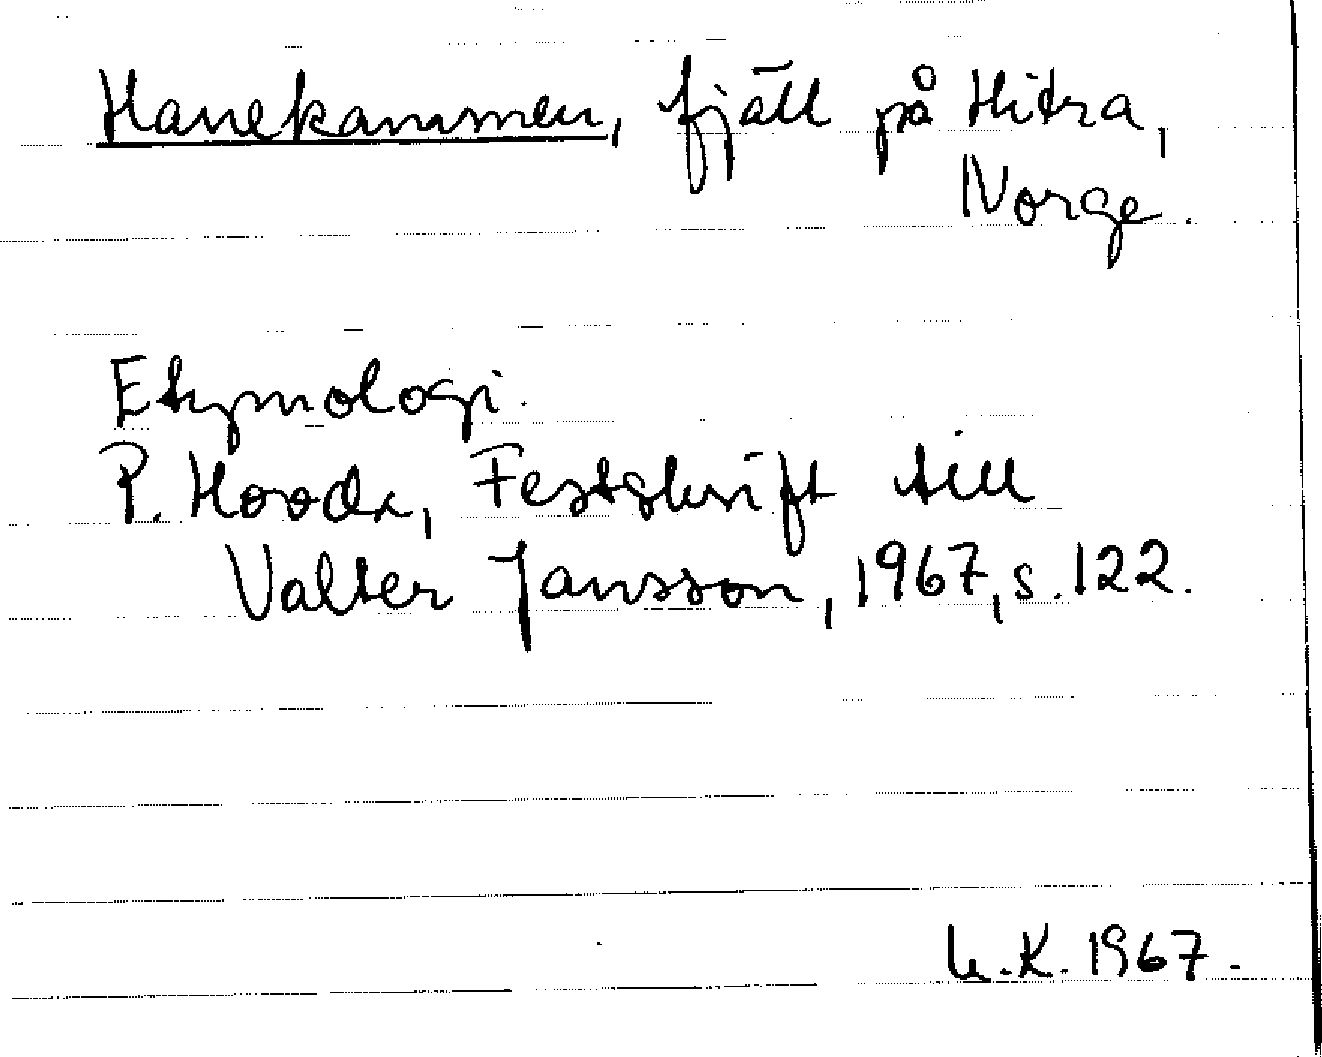 Hanekammen, fjäll på Hitra,
Norge.
Etymologi.
P. Hovda, Festskrift till
Valter Jansson, 1967, s. 122.
K. 1967.